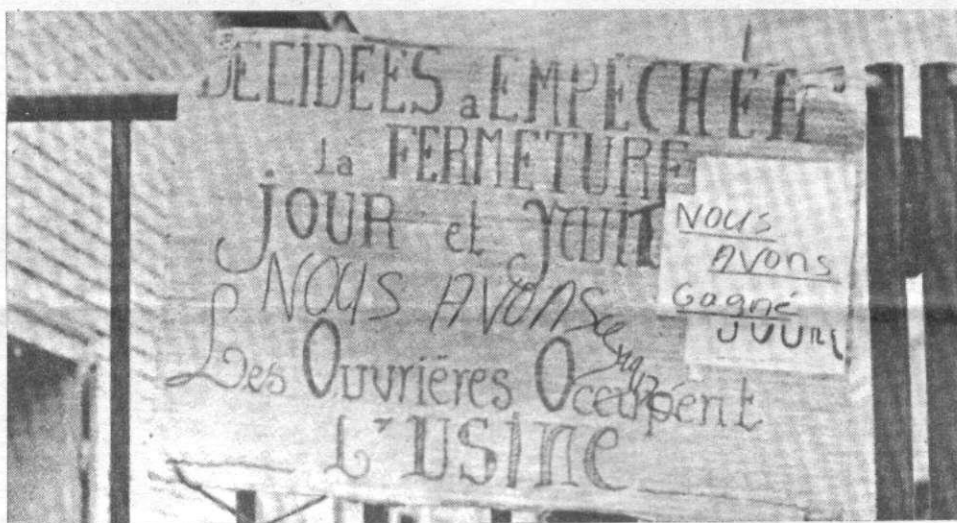 DECIDEES a EMPÉCHER
la FERMETURE
JOUR et NUIT
NOUS AVONS
Les Ouvrières Occupent
L'USINE
NOUS
AVons
Gagné